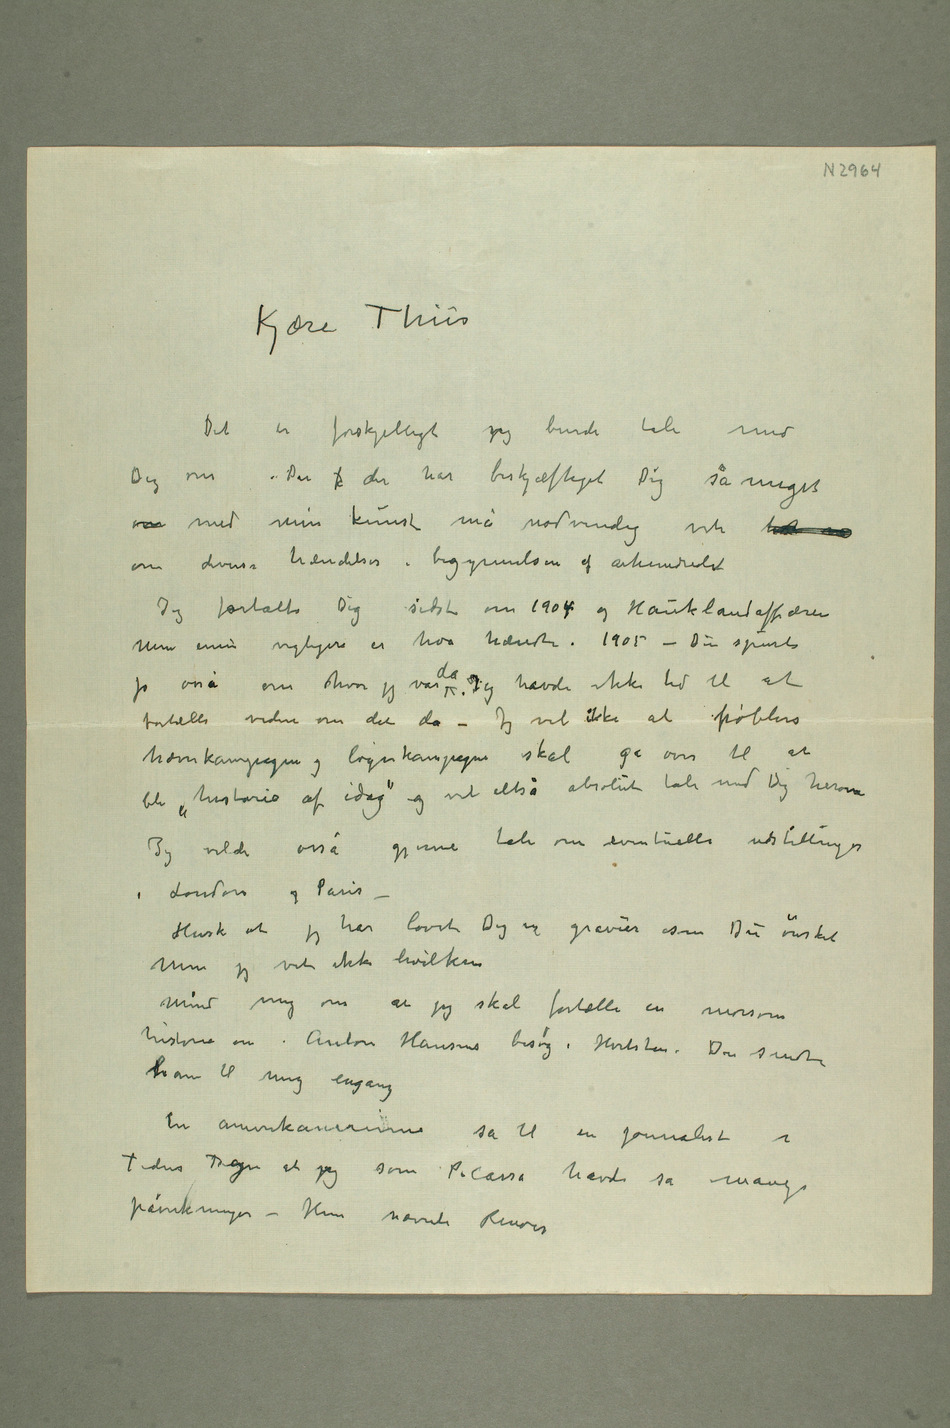 N 2964
Kjære Thiis
Det er forskjelligt jeg burde tale med
Dig om. Du der har beskjæftiget Dig så meget
om med min kunst må nødvendig vite
om diverse hændelser i begynnelsen af århundredet
Jeg fortalte Dig sidst om 1904 og Hauklandaffæren
men ennu vigtigere er hva hændte i 1905 – Du spurte
jo osså om hvor jeg var da. Jeg havde ikke tid til at
fortælle videre om det da – Jeg vil ikke at pøblens
hævnkampagne og løgnkampagne skal gå over til at
bli „historie af idag" og vil altså absolut tale med Dig herom
Jeg vilde osså gjerne tale om eventuelle udstillinger
i London og Paris –
Husk at jeg har lovet Dig en gravür som Du ønsket
men jeg vet ikke hvilken
Mind mig om at jeg skal fortælle en morsom
historie om Anton Hansens besøg i Hvitsten. Du sendte
ham til mig engang
En amerikanerinne sa til en journalist i
Tidens Tegn at jeg som Picasso havde så mange
påvirkninger – Hun nævnte Renoir